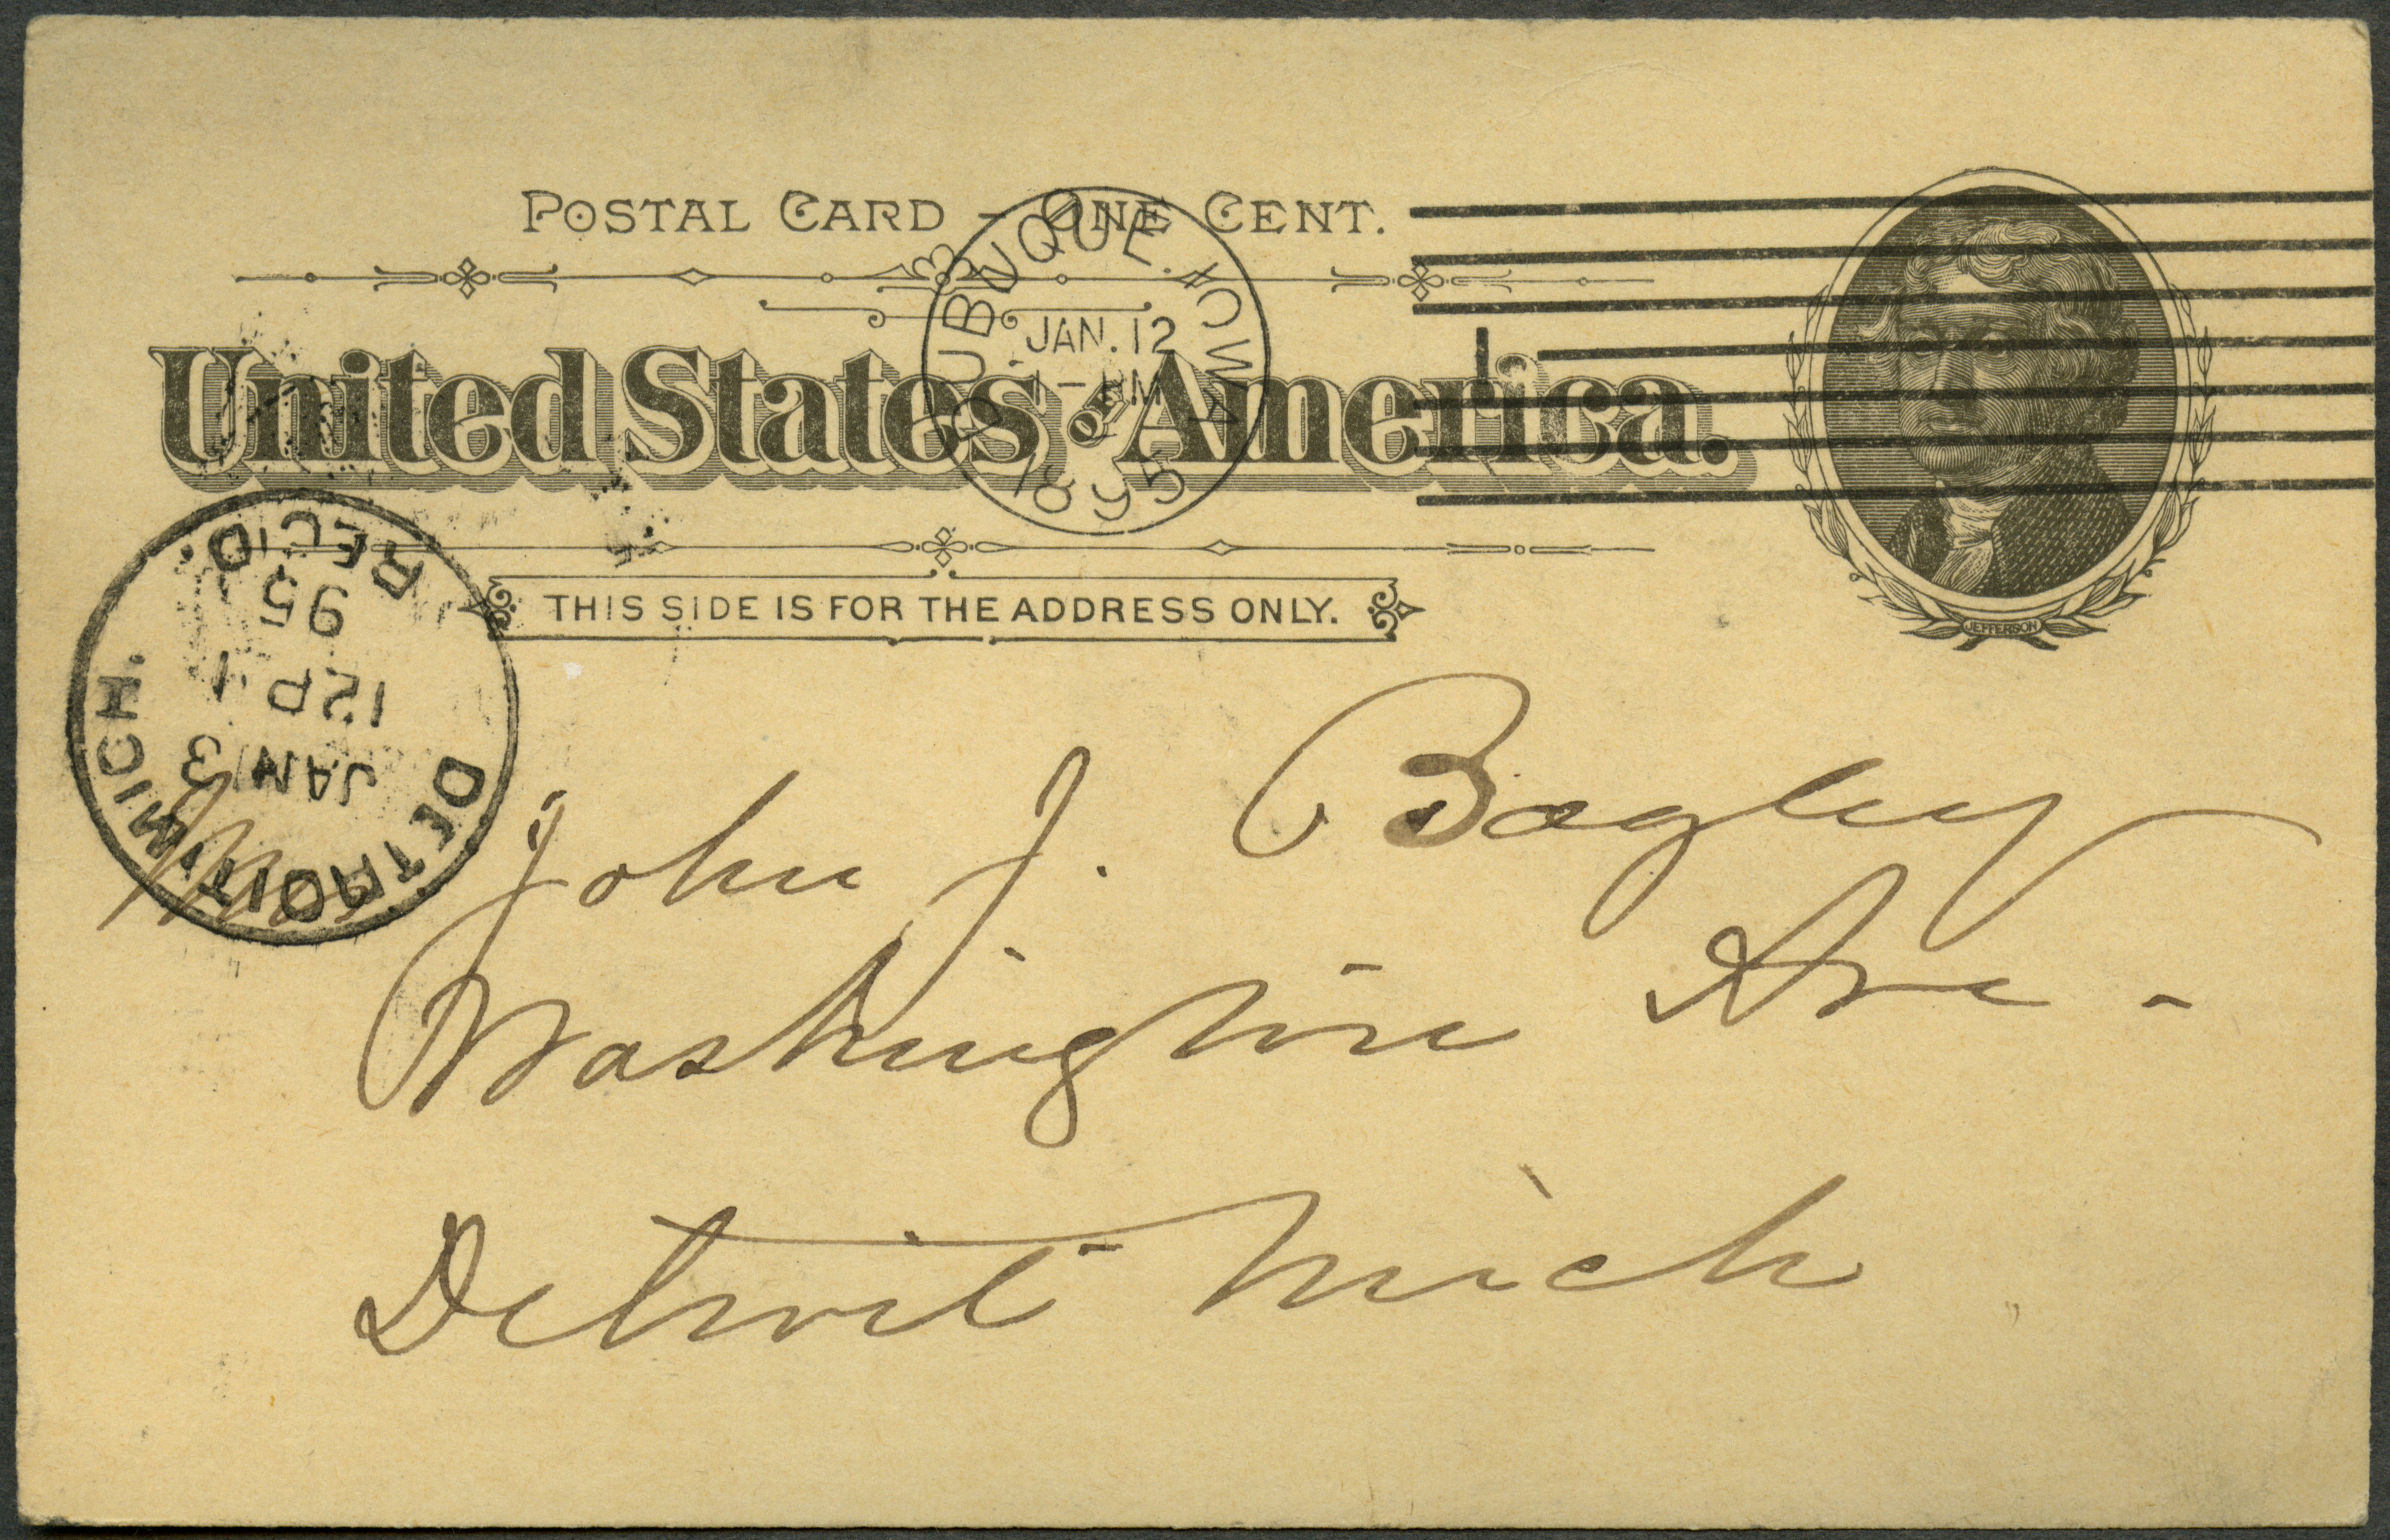 POSTAL CARD - ONE CENT.
United States of America.
JEFFERSON
THIS SIDE IS FOR THE ADDRESS ONLY.
DUBUQUE. IOWA
JAN. 12
1-PM
1895
DETROIT, MICH.
JAN 13
12 P 1
95
REC'D.
Mrs John J. Bagley
Washington Ave -
Detroit Mich